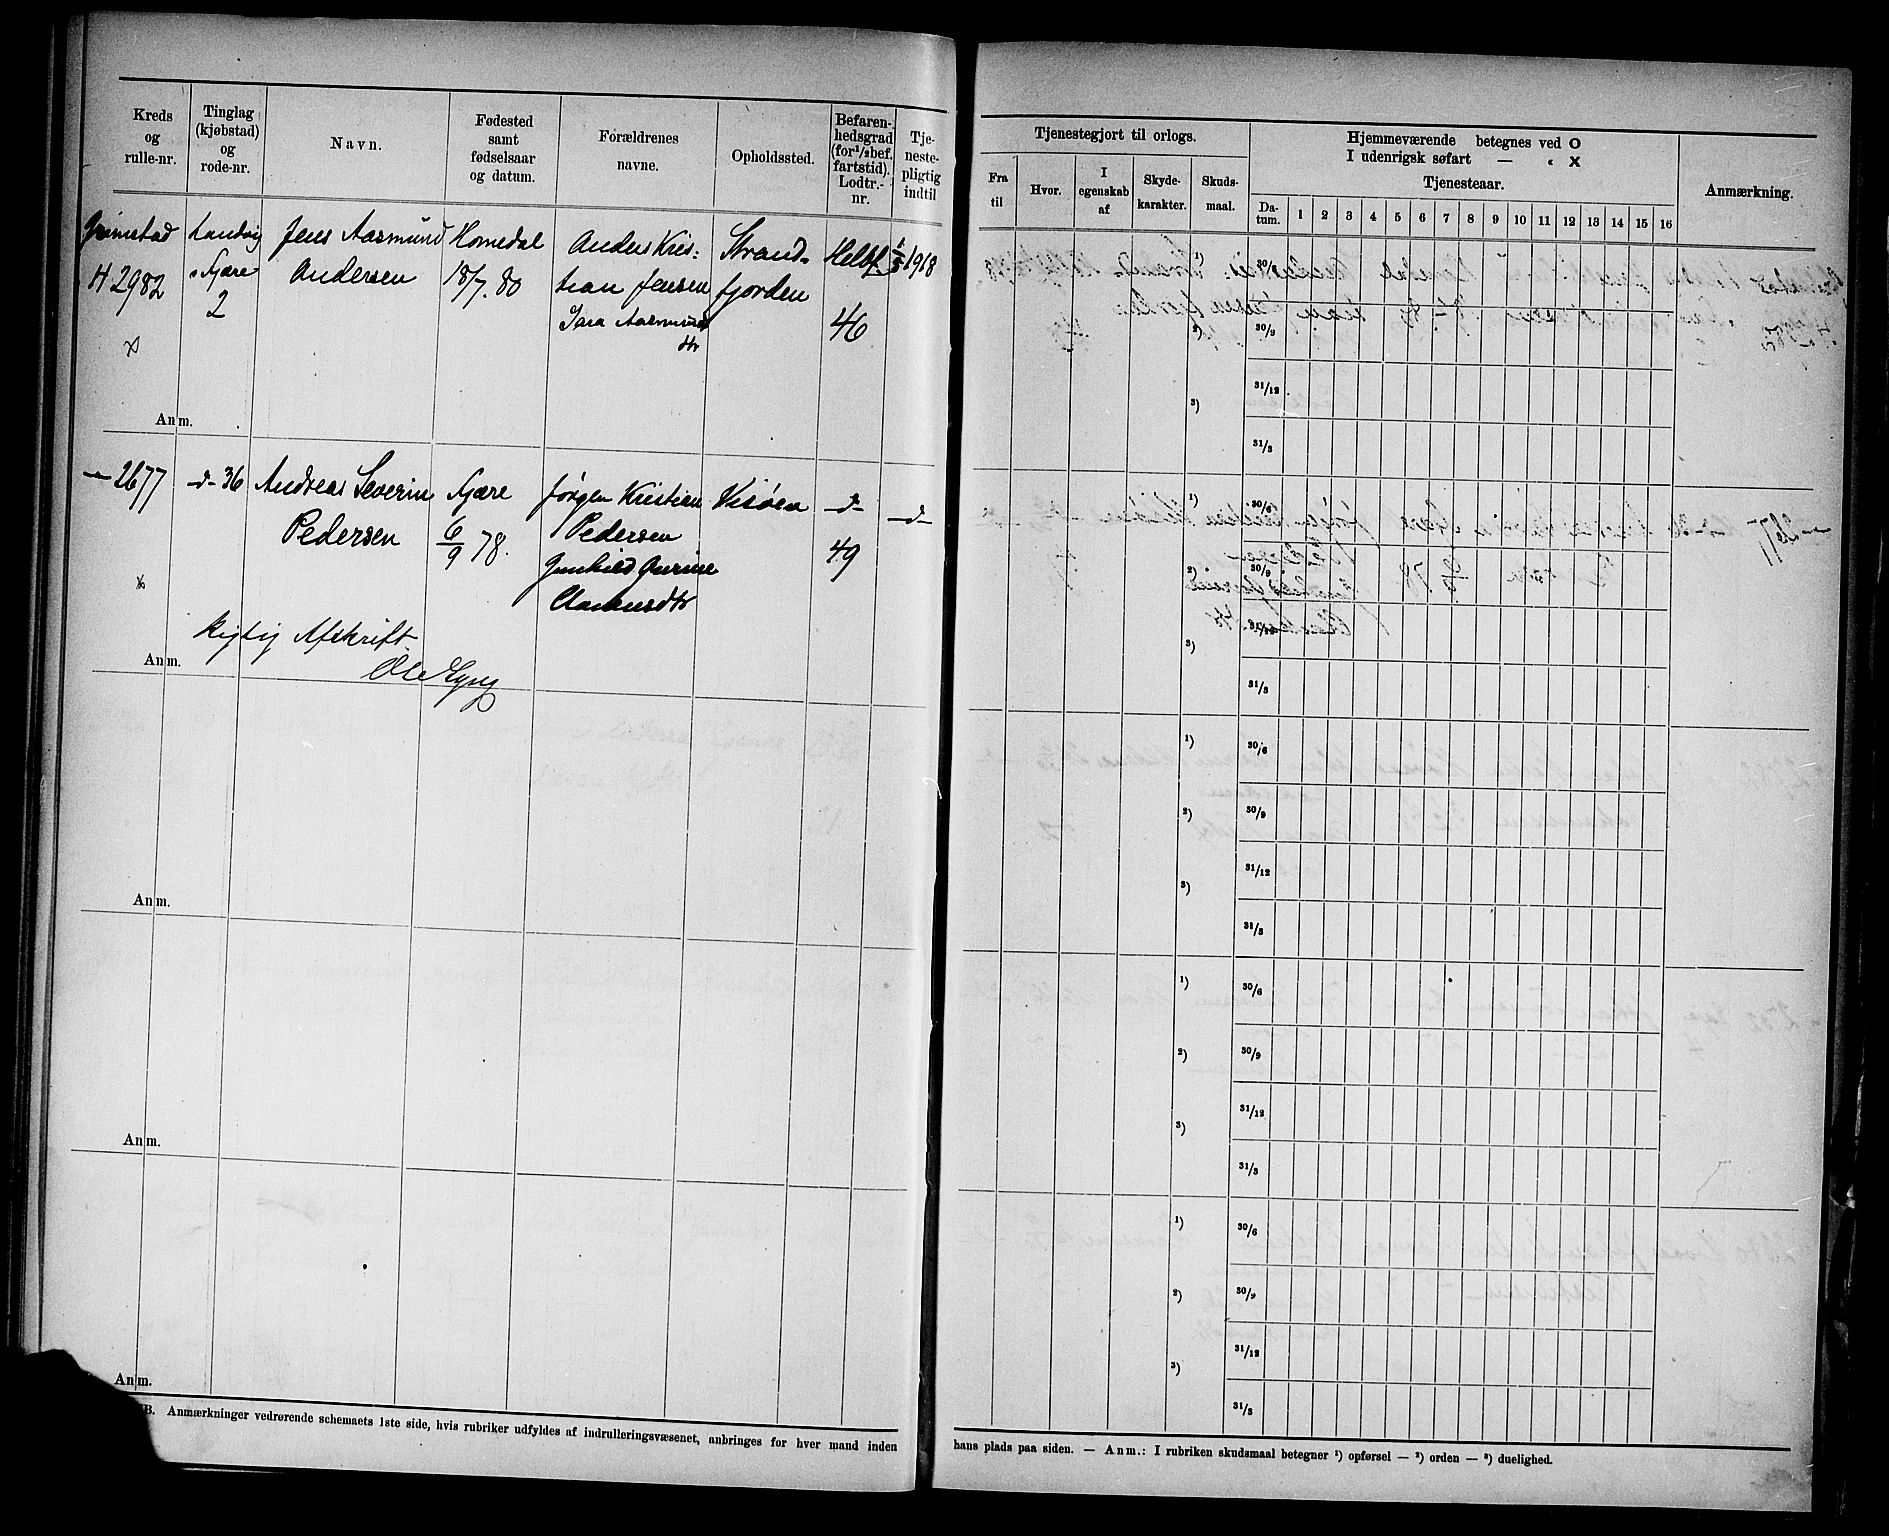 Kreds
og
rulle-nr.
Tinglag
(kjøbstad)
og
rode-nr.
Navn.
Fødested
samt
fødselsaar
og datum.
Forældrenes
navne.
Opholdssted.
Befaren-
hedsgrad
(for ½ bef.
fartstid).
Lodtr.-
nr.
Tje-
neste-
pligtig
indtil
Grimstad
H 2982
x
Landvig
o Fjære
2
Jens Aasmund
Andersen
Homedal
18/7. 80
Anders Kris:
tian Jensen
Aasmunds
dtr
Strand-
fjorden
Helbf.
46
1/5 1918
Anm.
— 2677
x
-d- 36
Andreas Severin
Pedersen
Fjære
6/9 78.
Jørgen Kristian
Pedersen
Gunhild
Visøen
-d-
49
-d-
Rigtig Afskrift.
Anm.
Ole
Anm.
Anm.
Anm.
NB. Anmærkninger vedrørende schemaets 1ste side, hvis rubriker udfyldes af indrulleringsvæsenet, anbringes for hver mand inden
Tjenestegjort til orlogs.
Fra
til
Hvor.
I
egenskab
af
Skyde-
karakter.
Skuds-
maal.
Hjemmeværende betegnes ved O
I udenrigsk søfart — „ X
Tjenesteaar.
Da-
tum.
1 2 3 4 5 6 7 8 9 10 11 12 13 14 15 16
Anmærkning.
¹) 30/6
²) 30/9
31/12
³)
31/3
¹) 30/6
²) 30/9
31/12
³)
31/3
¹) 30/6
²) 30/9
31/12
³)
31/3
¹) 30/6
²) 30/9
31/12
³)
31/3
¹) 30/6
²) 30/9
31/12
³)
31/3
hans plads paa siden. — Anm.: I rubriken skudsmaal betegner ¹) opførsel — ²) orden — ³) duelighed.